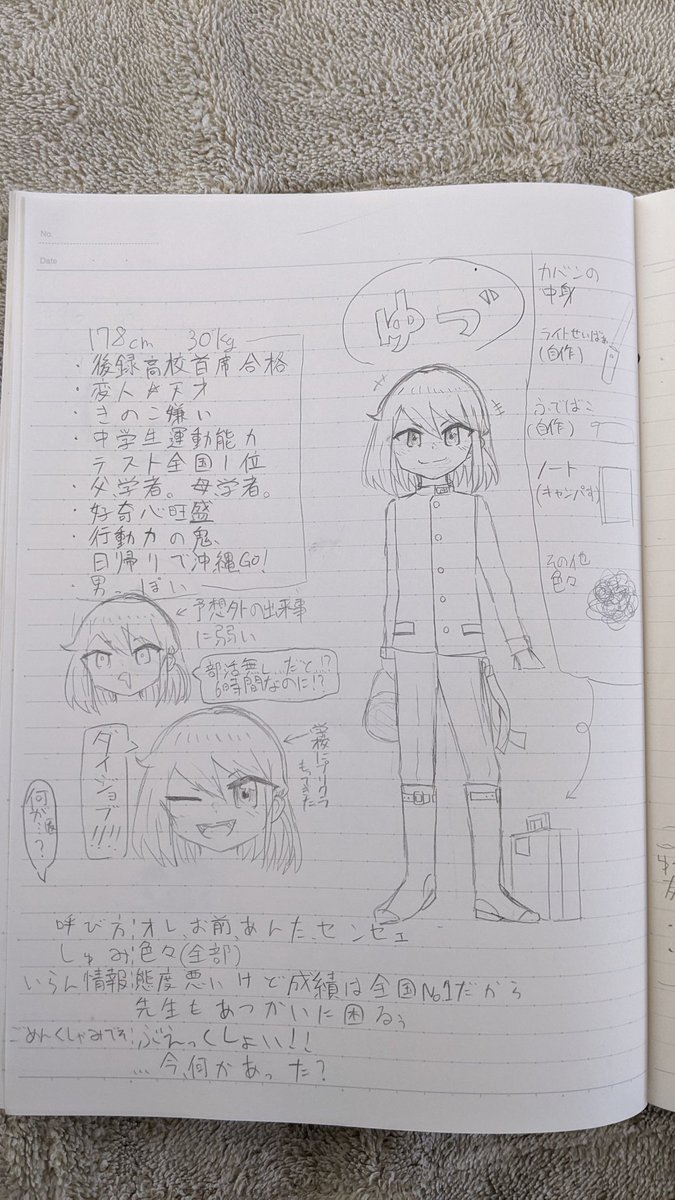 No.
Date
ゆづ
178cm 30kg
・後録高校首席合格
・変人 天才
・きのこ嫌い
・中学生運動能力
テスト全国1位
・父学者。母学者。
・好奇心旺盛
・行動力の鬼、
日帰りで沖縄GO!
・男っぽい
←予想外の出来事
に弱い
部活無し…だと…!?
6時間なのに!?
ダイジョブ!!!
何が…?
カバンの
中身
ライトせいばぁ
(自作)
ふでばこ
(自作)
ノート
(キャンパす)
その他
色々
呼び方:オレ、お前、あんた、センセェ
しゅみ:色々(全部)
いらん情報:態度悪いけど成績は全国No.1だから
先生もあつかいに困るぅ
ごめんくしゃみです:ぶえっくしょい!!
…今、何があった?